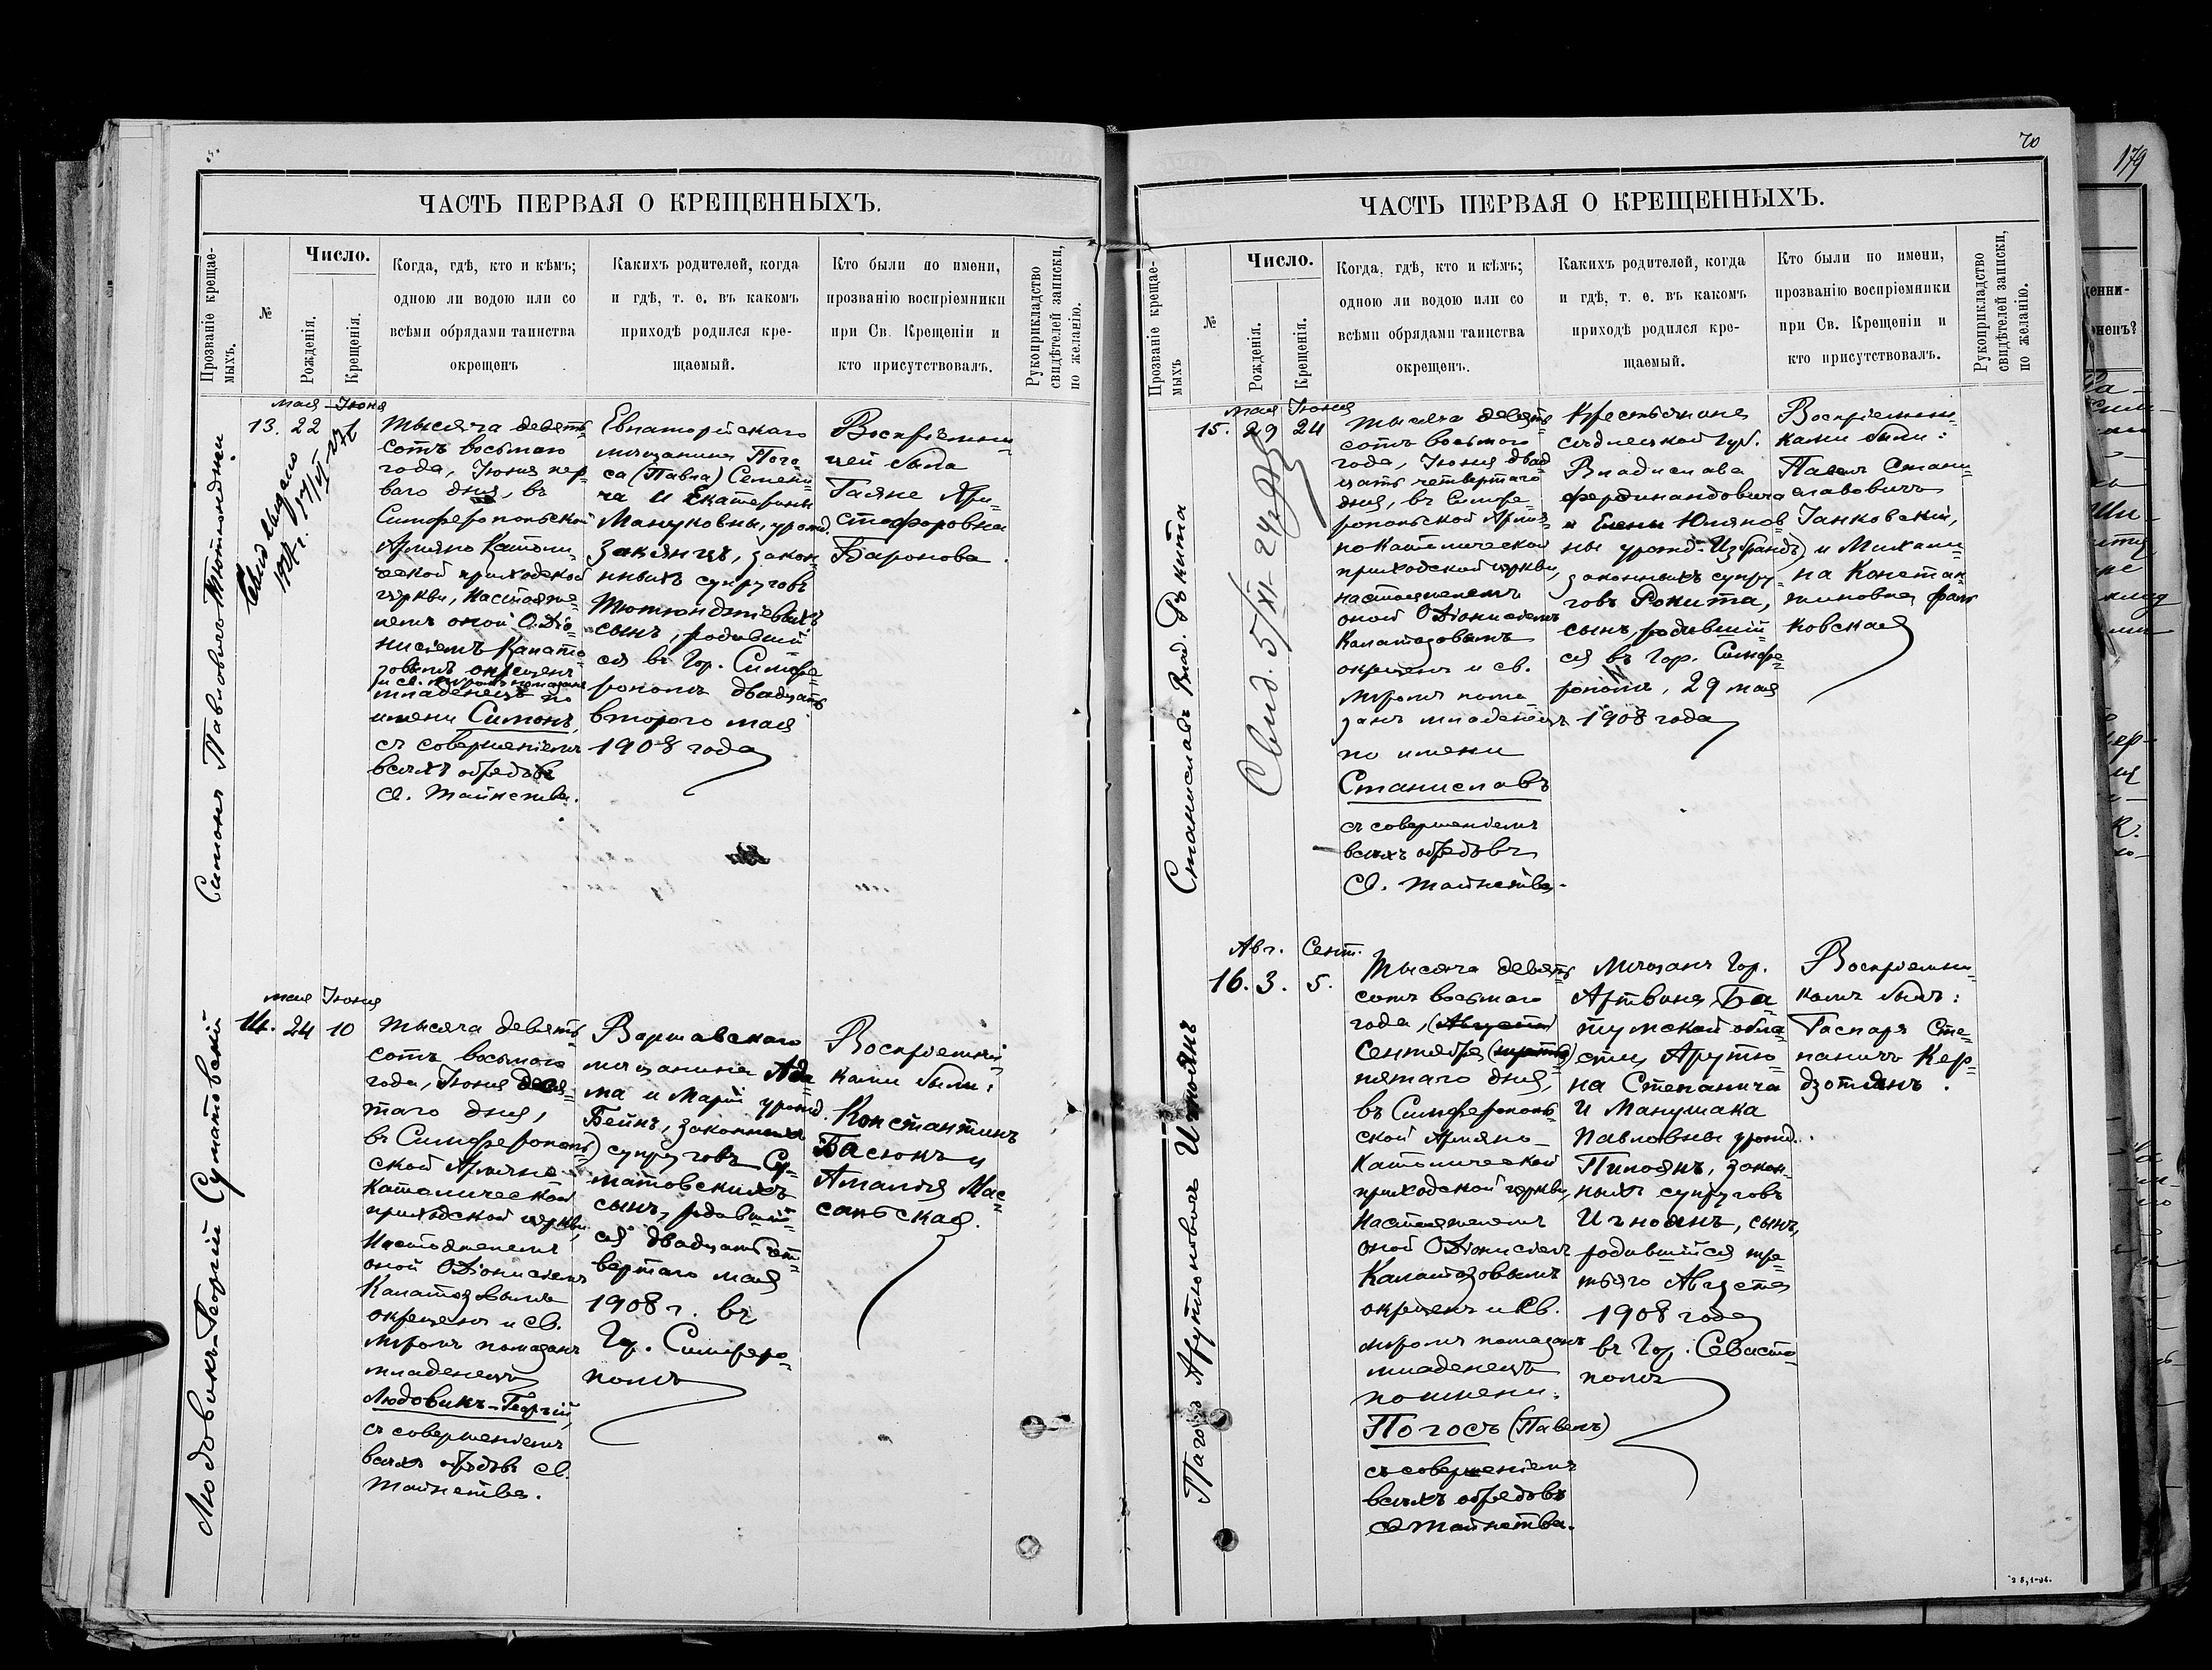 70
179
ЧАСТЬ ПЕРВАЯ О КРЕЩЕННЫХЪ.
Прозваніе крещае-
мыхъ.
№
Число.
Рожденія.
Крещенія.
Когда, гдѣ, кто и кѣмъ;
одною ли водою или со
всѣми обрядами таинства
окрещенъ
Какихъ родителей, когда
и гдѣ, т. е. въ какомъ
приходѣ родился кре-
щаемый.
Кто были по имени,
прозванію воспріемники
при Св. Крещеніи и
кто присутствовалъ.
Рукоприкладство
свидѣтелей записки,
по желанію.
Симонъ Павловичъ Тютюнджи
мая Іюня
13. 22 1
Свид. выдано
Тысяча девять=
сотъ восьмого
года, Іюня пер=
ваго дня, въ
Симферопольской
Армяно Католи=
ческой приходской
церкви, настояте=
лемъ оной О. Діо=
нисіемъ Калата=
зовымъ окрещенъ
и св. миромъ помазанъ
младенецъ по
имени Симонъ,
съ совершеніемъ
всѣхъ обрядовъ
Св. Таинства.
Евпаторійскаго
мѣщанина Пого=
са (Павла) Семены=
ча и Екатерины
Мануковны, урожд.
Закіянцъ, закон=
нныхъ супруговъ
Тютюнджіевыхъ
сынъ, родившій=
ся въ Гор. Симфе=
рополѣ двадцать
второго мая
1908 года
Воспріемни=
цей была
Гаяне Хри=
стофоровна
Баронова.
Людовикъ-Георгій Суматовскій
мая Іюня
14. 24 10
Тысяча девять=
сотъ восьмого
года, Іюня деся=
таго дня,
въ Симферополь=
ской Армяно
Католической
приходской церкви,
Настоятелемъ
оной О. Діонисіемъ
Калатазовымъ
окрещенъ и св.
миромъ помазанъ
младенецъ
Людовикъ-Георгій,
съ совершеніемъ
всѣхъ обрядовъ св.
Таинства.
Варшавскаго
мѣщанина Ада=
ма и Маріи урожд.
Бейнъ, законныхъ
супруговъ Су=
матовскихъ
сынъ, родившій=
ся двадцать чет=
вертаго мая
1908 г. въ
Гор. Симферо=
полѣ
Воспріемни=
ками были:
Константинъ
Басюкъ и
Амалія Мас=
сальская.
ЧАСТЬ ПЕРВАЯ О КРЕЩЕННЫХЪ.
Прозваніе крещае-
мыхъ
№
Число.
Рожденія.
Крещенія.
Когда, гдѣ, кто и кѣмъ;
одною ли водою или со
всѣми обрядами таинства
окрещенъ.
Какихъ родителей, когда
и гдѣ, т. е. въ какомъ
приходѣ родился кре-
щаемый.
Кто были по имени,
прозванію воспріемники
при Св. Крещеніи и
кто присутствовалъ.
Рукоприкладство
свидѣтелей записки,
по желанію.
Станиславъ Влад. Рокита
мая Іюня
15. 29 24
Свид. 5/XI
Тысяча девять=
сотъ восьмого
года, Іюня двад
цать четвертаго
дня, въ Симфе=
ропольской Армя=
но Католической
приходской церкви,
настоятелемъ
оной О. Діонисіемъ
Калатазовымъ
окрещенъ и св.
миромъ пома
занъ младенецъ
по имени
Станиславъ
съ совершеніемъ
всѣхъ обрядовъ
Св. Таинства.
Крестьянина
Сѣдлецкой Губ.
Владислава
Фердинандовича
и Елены Юлянов
ны урожд. Избрандъ)
законныхъ супру=
говъ Рокита,
сынъ, родившій=
ся въ Гор. Симфе=
рополѣ, 29 мая
1908 года
Воспріемни=
ками были:
Павелъ Стани=
славовичъ
Ганковскій,
и Михали=
на Констан=
тиновна Фалѣ
ковская
Пагосъ Арутюновичъ Игноянъ
Авг. Сент.
16. 3. 5.
Тысяча девять
сотъ восьмого
года, (Августа)
Сентября
пятаго дня,
въ Симферополь
ской Армяно-
Католической
приходской церкви,
Настоятелемъ
оной О. Діонисіемъ
Калатазовымъ
окрещенъ и Св.
миромъ помазанъ
младенецъ
по имени:
Погосъ (Павелъ)
съ совершеніемъ
всѣхъ обрядовъ
Св. Таинства.
Мѣщанъ Гор.
Артвина Ба
тумской обла
сти, Арутю
на Степанича
и Манушака
Павловны урожд.
Пилоянъ, закон=
ныхъ супруговъ
Игноянъ, сынъ,
родившійся тре=
тьяго Августа
1908 года
въ Гор. Севасто=
полѣ
Воспріемни=
комъ былъ:
Гаспаръ Сте=
паничъ Кер=
дзотянъ.